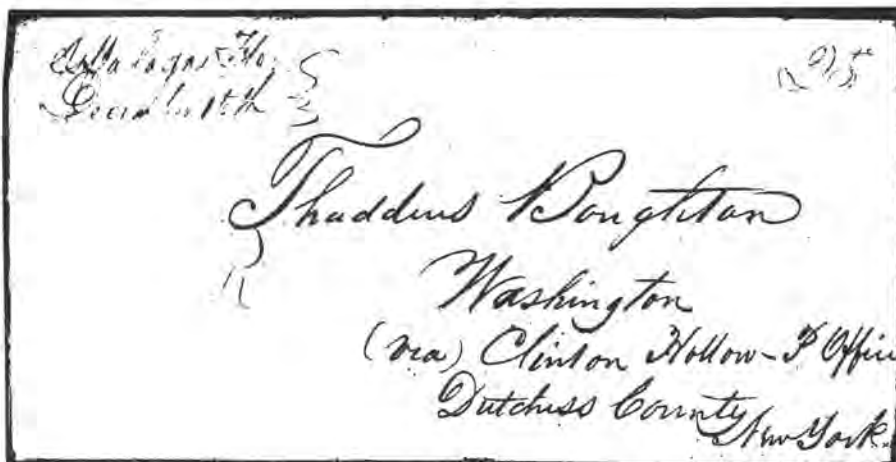 Flo.
December 15th
25
Thaddeus Boughton
Washington
(via) Clinton Hollow - P Office
Dutchess County
New York.